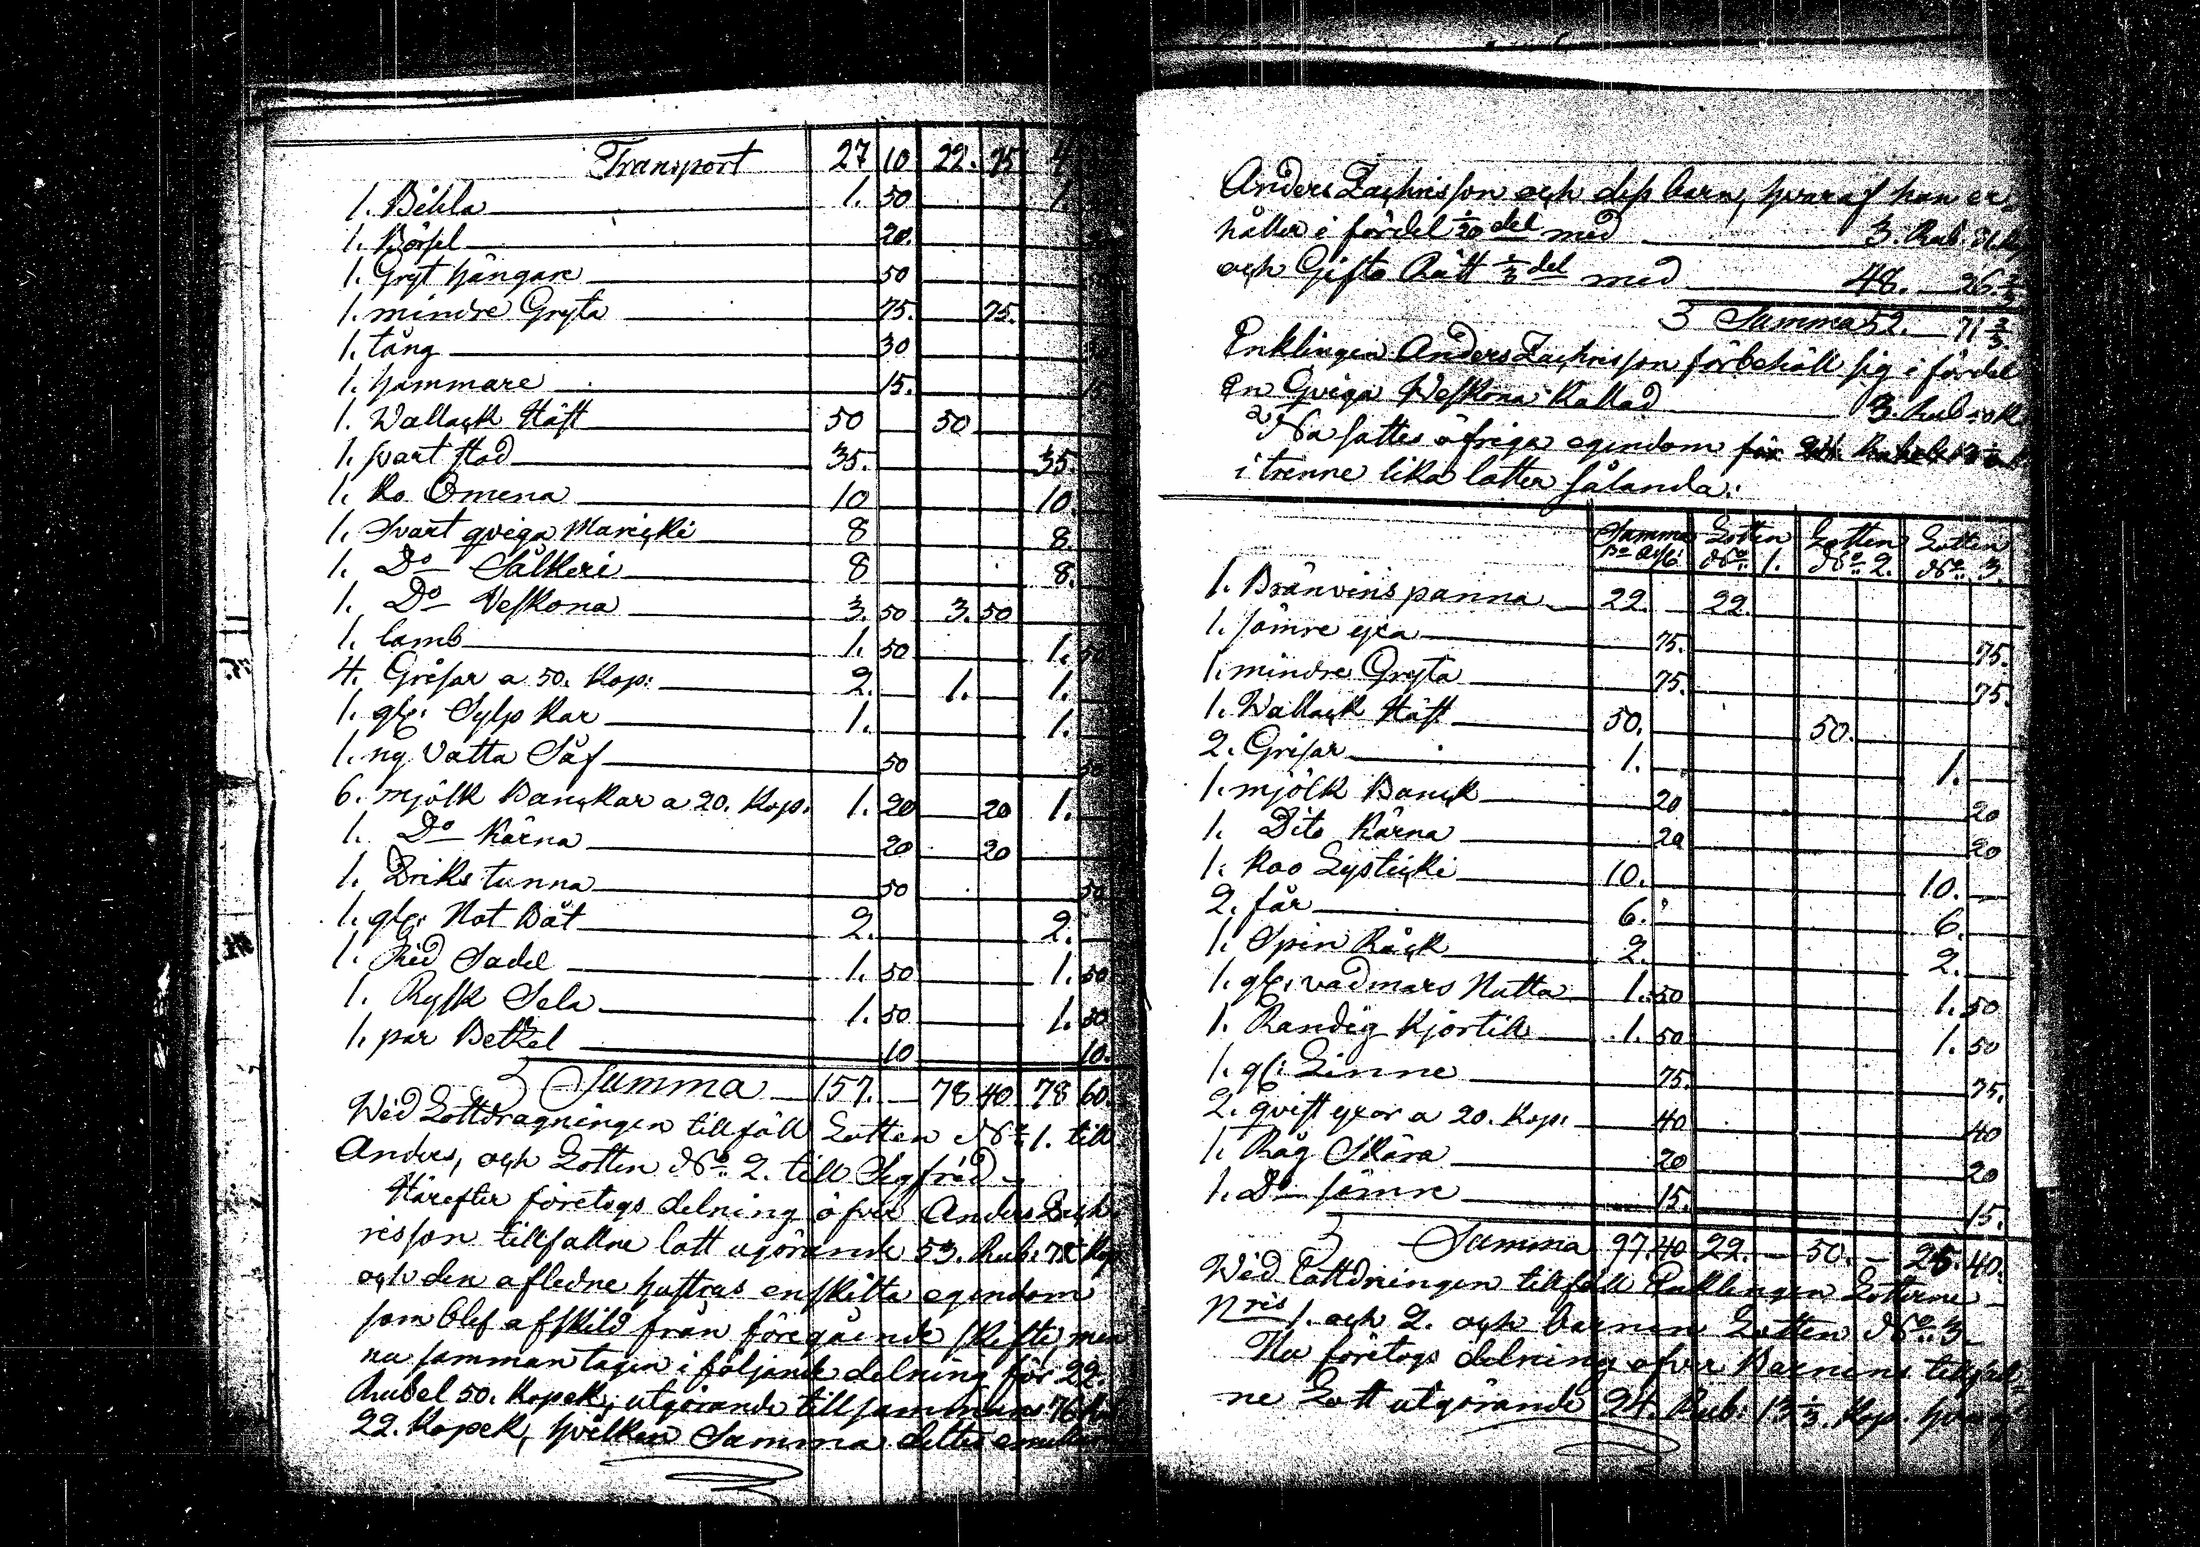 Transport 27 10 22. 75 4
1. Bibla 1. 50 1.
1. Börsel 20.
1. Gryt hängare 50
1. mindre Gryta 75. 75.
1. tång 30
1. hammare 15. 15
1. Wallack Häst 50 50
1. svart stod 35. 35
1. Ko Omena 10 10.
1. Svart qviga Maricki 8 8.
1. Do Sälkeri 8 8.
1. Do Veskona 3. 50 3. 50
1. lamb 1. 50 1. 50
4. Grisar a 50. Kop: 2. 1. 1.
1. gl: Sylp Kar 1. 1.
1. ny Vatta Såf 50 50
6. mjölk Banckar a 20. Kop. 1. 20 20 1.
1. Do Kärna 20 20
1. Driks tunna 50 50
1. gl: Not Båt 2. 2.
1. Rid Sadel 1. 50 1. 50
1. Rysk Sela 1. 50 1. 50
1. par Betzel 10 10.
Summa 157. — 78 40 78 60.
Wid Lottdragningen tillföll Lotten No 1. till
Anders, och Lotten No 2. till Sigfrid.
Härefter företogs delning öfver Anders Zach-
risson tillfallne lott ugörande 53. Rub: 72 Kop
och den aflidne hustrus enskilta egendom
som blef afskild från föregående skifte, men
nu samman tagen i följande delning för 22.
Rubel 50. Kopek, utgörande tillsammans 76 Rub
22. Kopek, hvilken Summa deltes emellan
Anders Zachrisson och dess barn, hvaraf han er-
håller i fördel 1/20 del med 3. Rub.
och Gifto Rätt 2/3 del med 48. 26. 2/3
Summa 52. 71 2/3
Enklingen Anders Zachrisson förbehöll sig i fördel
en Qviga Weskona Kallad 3. Rub 50 K.
Na sattes öfriga egendom för
i trenne lika lotter sålanda:
Summa Lotten Lotten Lotten
No 1. No 2. No 3.
1. Bränvins panna 22. 22.
1. sämre yxa 75. 75.
1. mindre Gryta 75. 75.
1. Wallack Häst 50. 50.
2. Grisar 1. 1.
1. mjölk Banck 20 20
1. Dito Kärna 20 20
1. Koo Lysticki 10. 10.
2. får 6. 6.
1. Spin Råck 2. 2.
1. gl: vadmars Natta 1. 50 1. 50
1. Randig Kjortill 1. 50 1. 50
1. gl: Linne 75. 75.
2. qvist yxor a 20. Kop: 40 40
1. Råg Skära 20 20
1. Do sämre 15. 15.
Summa 97. 40 22. — 50. — 25. 40.
Wid Lottdningen tillföll Enklingen Lotterne
Nris 1. och 2. och barnen Lotten No 3.
Nu företogs delning öfver Barnens tillfall-
ne Lott utgörande 24. Rub: 13 1/3. Kop.